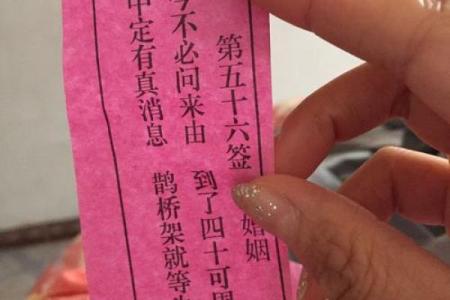 第五十六签 婚姻
今不必问来由 到了四十可
中定有真消息 鹊桥架就等